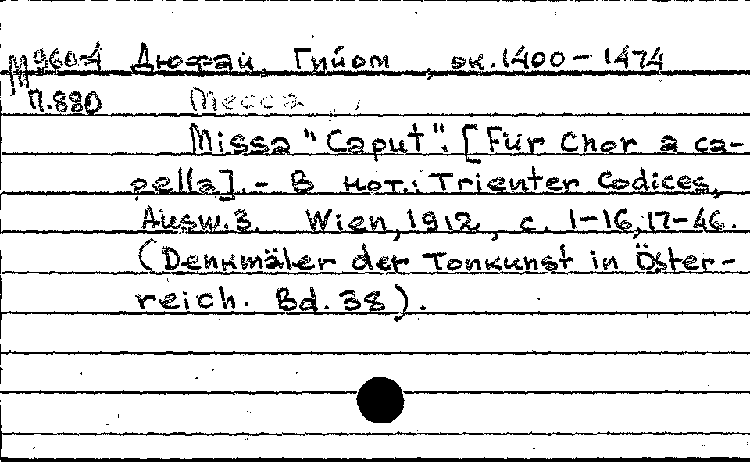 М 960-4 Дюфаи, Гийом, ок. 1400 – 1474
П.880 Месса
Missa "Caput". [Für Chor a ca-
pella]. – В нот.: Trienter Codices,
Ausw. 3. Wien, 1912, с. 1–16, 17–46.
(Denkmäler der Tonkunst in Öster-
reich. Bd. 38).